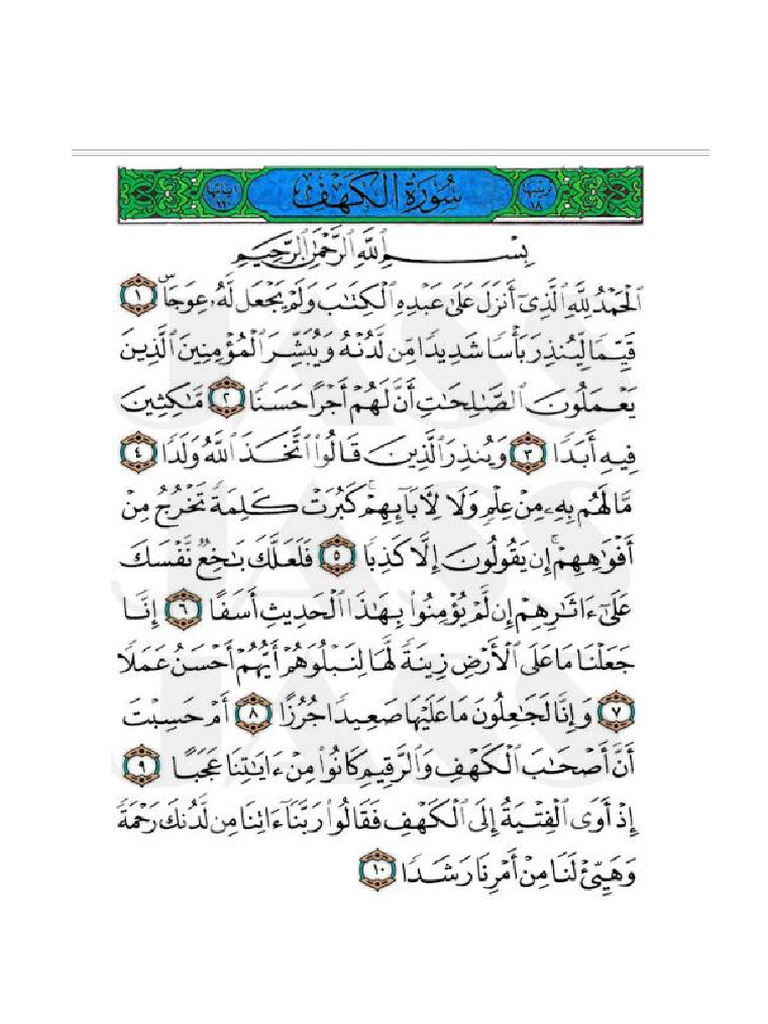 ترتيبها ١٨ سُورَةُ الكَهْف آياتها ١١٠
بِسْمِ ٱللَّهِ ٱلرَّحْمَٰنِ ٱلرَّحِيمِ
ٱلْحَمْدُ لِلَّهِ ٱلَّذِىٓ أَنزَلَ عَلَىٰ عَبْدِهِ ٱلْكِتَٰبَ وَلَمْ يَجْعَل لَّهُۥ عِوَجَاۜ ١
قَيِّمًا لِّيُنذِرَ بَأْسًا شَدِيدًا مِّن لَّدُنْهُ وَيُبَشِّرَ ٱلْمُؤْمِنِينَ ٱلَّذِينَ
يَعْمَلُونَ ٱلصَّٰلِحَٰتِ أَنَّ لَهُمْ أَجْرًا حَسَنًا ٢ مَّٰكِثِينَ
فِيهِ أَبَدًا ٣ وَيُنذِرَ ٱلَّذِينَ قَالُوا۟ ٱتَّخَذَ ٱللَّهُ وَلَدًا ٤
مَّا لَهُم بِهِۦ مِنْ عِلْمٍ وَلَا لِءَابَآئِهِمْ ۚ كَبُرَتْ كَلِمَةً تَخْرُجُ مِنْ
أَفْوَٰهِهِمْ ۚ إِن يَقُولُونَ إِلَّا كَذِبًا ٥ فَلَعَلَّكَ بَٰخِعٌ نَّفْسَكَ
عَلَىٰٓ ءَاثَٰرِهِمْ إِن لَّمْ يُؤْمِنُوا۟ بِهَٰذَا ٱلْحَدِيثِ أَسَفًا ٦ إِنَّا
جَعَلْنَا مَا عَلَى ٱلْأَرْضِ زِينَةً لَّهَا لِنَبْلُوَهُمْ أَيُّهُمْ أَحْسَنُ عَمَلًا
٧ وَإِنَّا لَجَٰعِلُونَ مَا عَلَيْهَا صَعِيدًا جُرُزًا ٨ أَمْ حَسِبْتَ
أَنَّ أَصْحَٰبَ ٱلْكَهْفِ وَٱلرَّقِيمِ كَانُوا۟ مِنْ ءَايَٰتِنَا عَجَبًا ٩
إِذْ أَوَى ٱلْفِتْيَةُ إِلَى ٱلْكَهْفِ فَقَالُوا۟ رَبَّنَآ ءَاتِنَا مِن لَّدُنكَ رَحْمَةً
وَهَيِّئْ لَنَا مِنْ أَمْرِنَا رَشَدًا ١٠
JASS
JASS
JASS